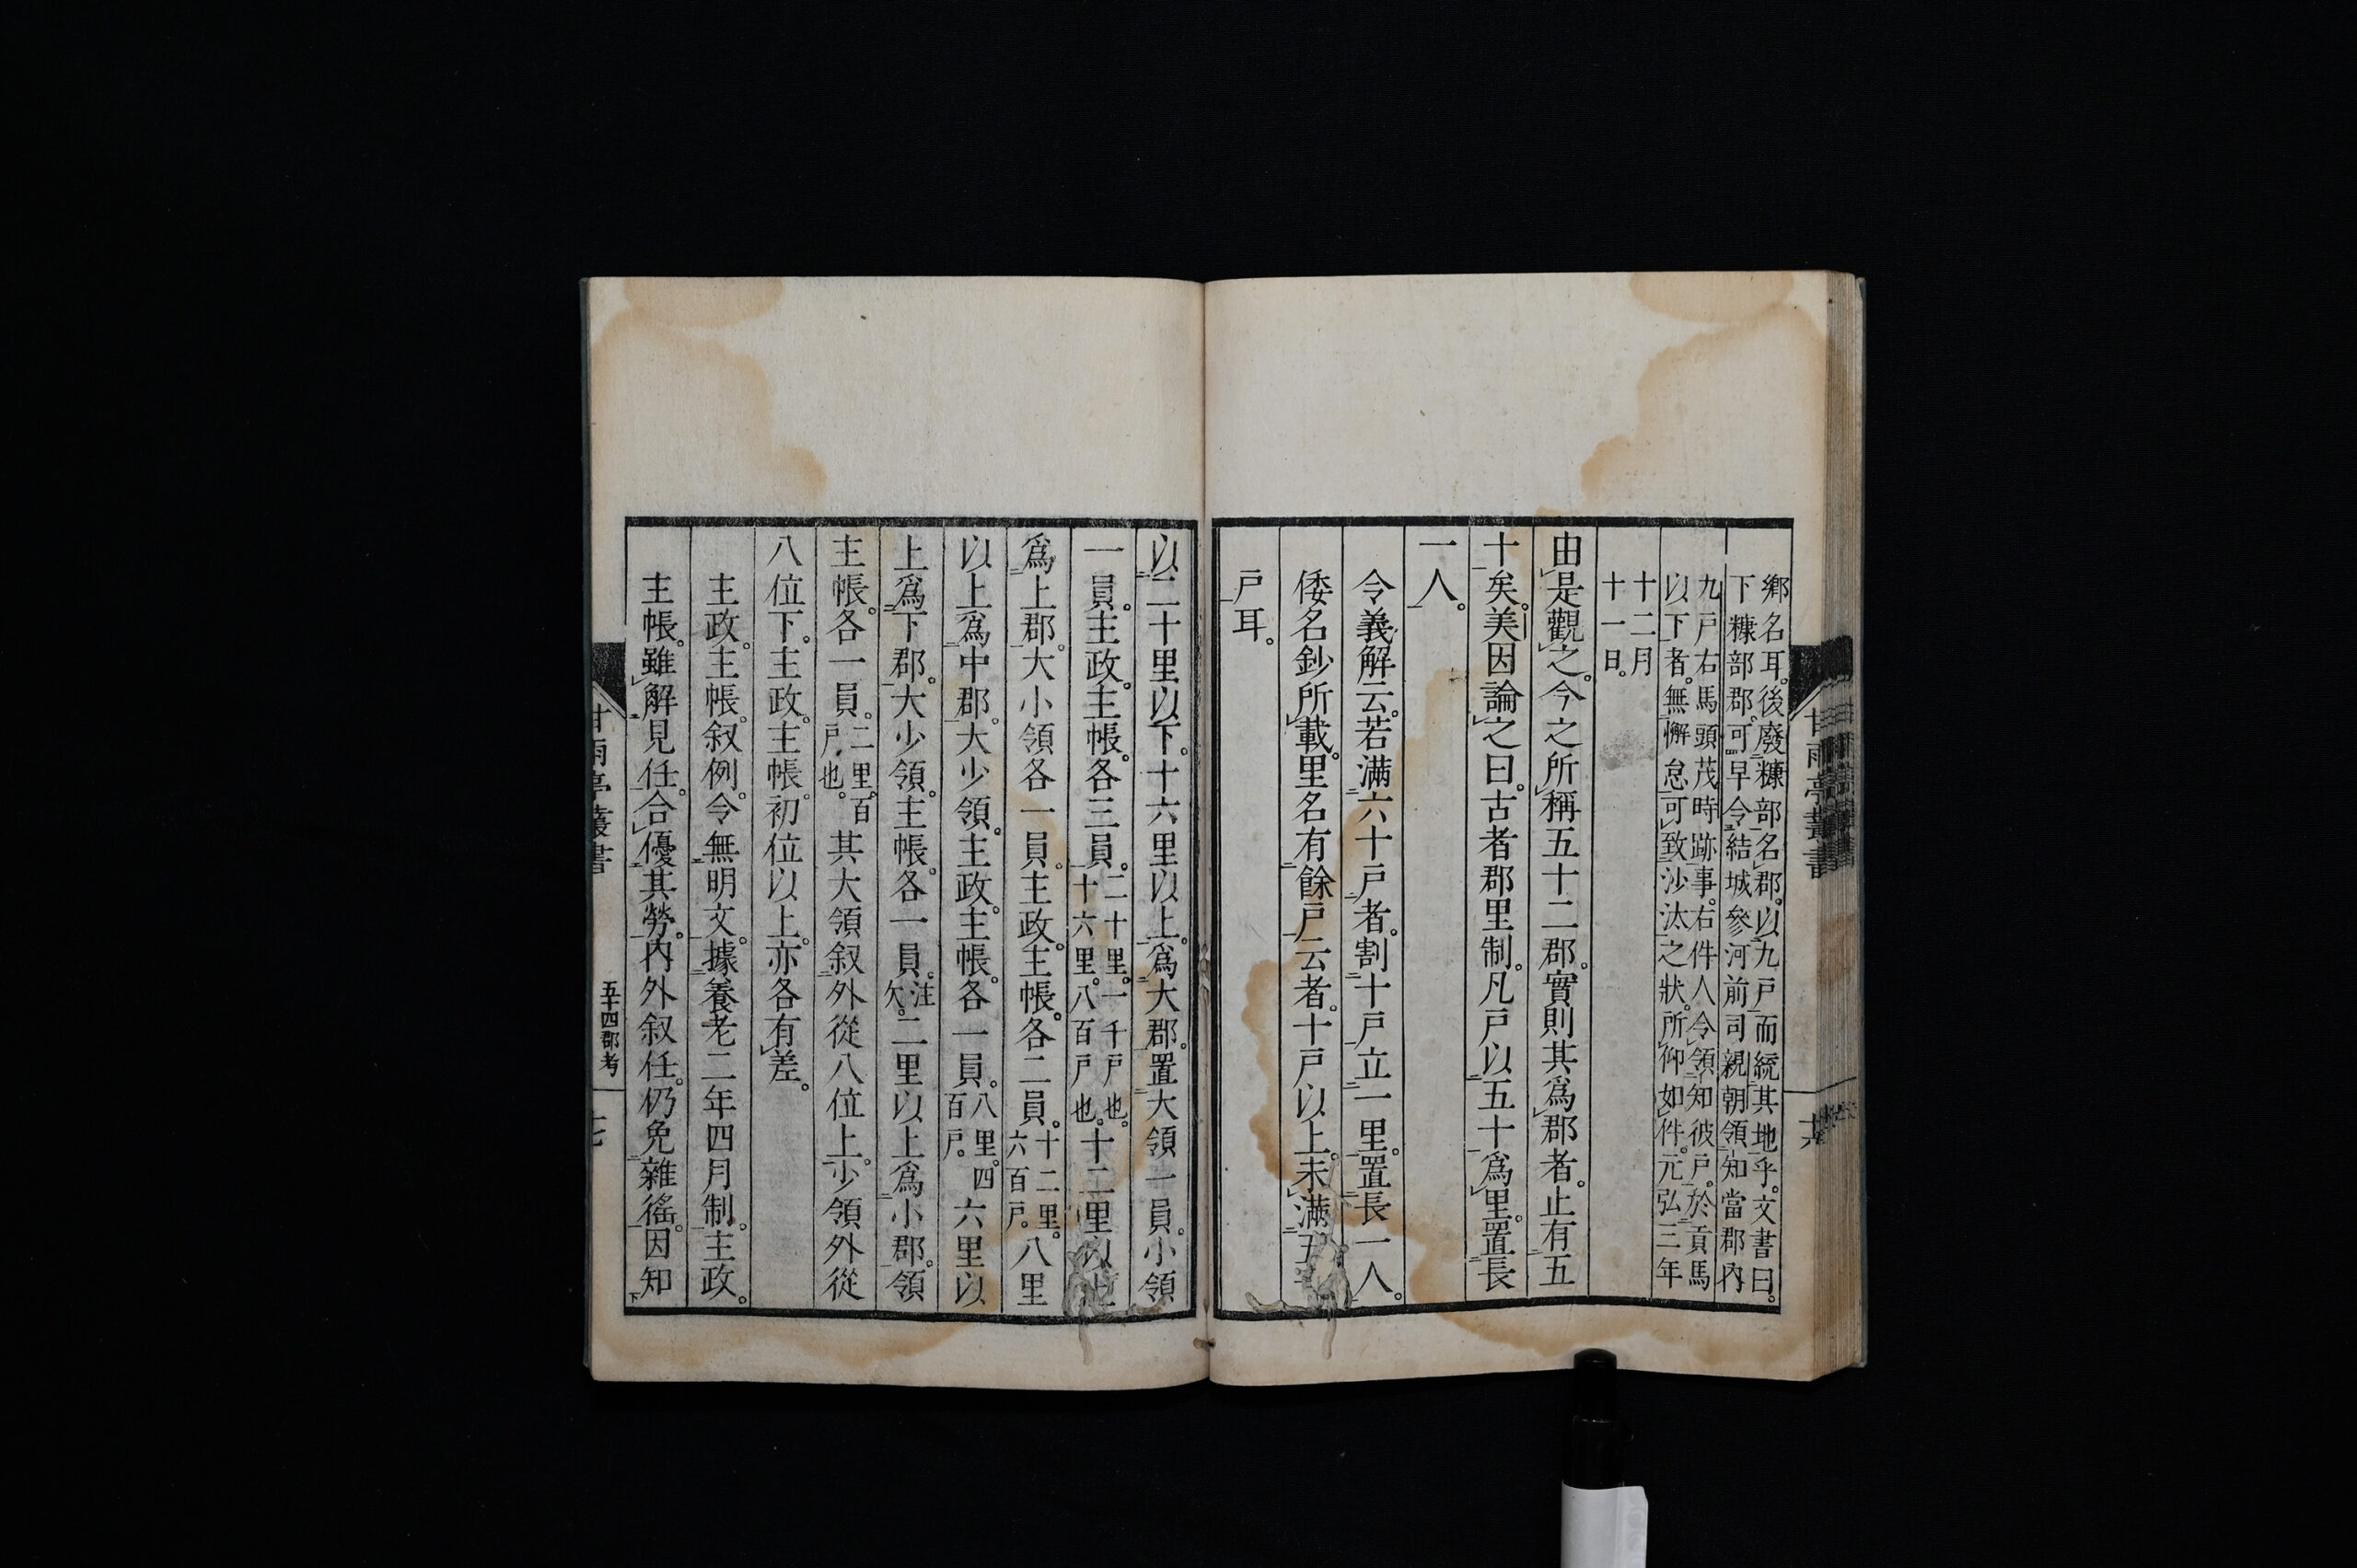 鄉名耳。後廢糠部名郡。以九戸而統其地乎。文書曰。
下糠部郡。可早令結城參河前司親朝領知當郡內
九戸右馬頭茂時跡事。右件人令領知彼戸。於貢馬
以下者。無懈怠可致沙汰之狀。所仰如件。元弘三年
十二月
十一日。
由是觀之。今之所稱五十二郡。實則其爲郡者。止有五
十矣。美因論之曰。古者郡里制。凡戸以五十爲里。置長
一人。
令義解云。若滿六十戸者。割十戸立一里。置長一人。
倭名鈔所載。里名有餘戸云者。十戸以上。未滿五十
戸耳。
甘雨亭叢書
十六
以二十里以下。十六里以上。爲大郡。置大領一員。小領
一員。主政。主帳。各三員。二十里。一千戸也。
十六里。八百戸也。十二里以上
爲上郡。大小領各一員。主政。主帳。各二員。十二里。
六百戸。八里
以上爲中郡。大少領。主政。主帳。各一員。八里。四
百戸。六里以
上爲下郡。大少領。主帳。各一員。注
欠。二里以上爲小郡。領
主帳。各一員。二里。百
戸也。其大領叙外從八位上。少領外從
八位下。主政。主帳。初位以上。亦各有差。
主政。主帳。叙例。令無明文。據養老二年四月制。主政。
主帳。雖解見任。合優其勞。內外叙任。仍免雜徭。因知
甘雨亭叢書
五十四郡考
十七